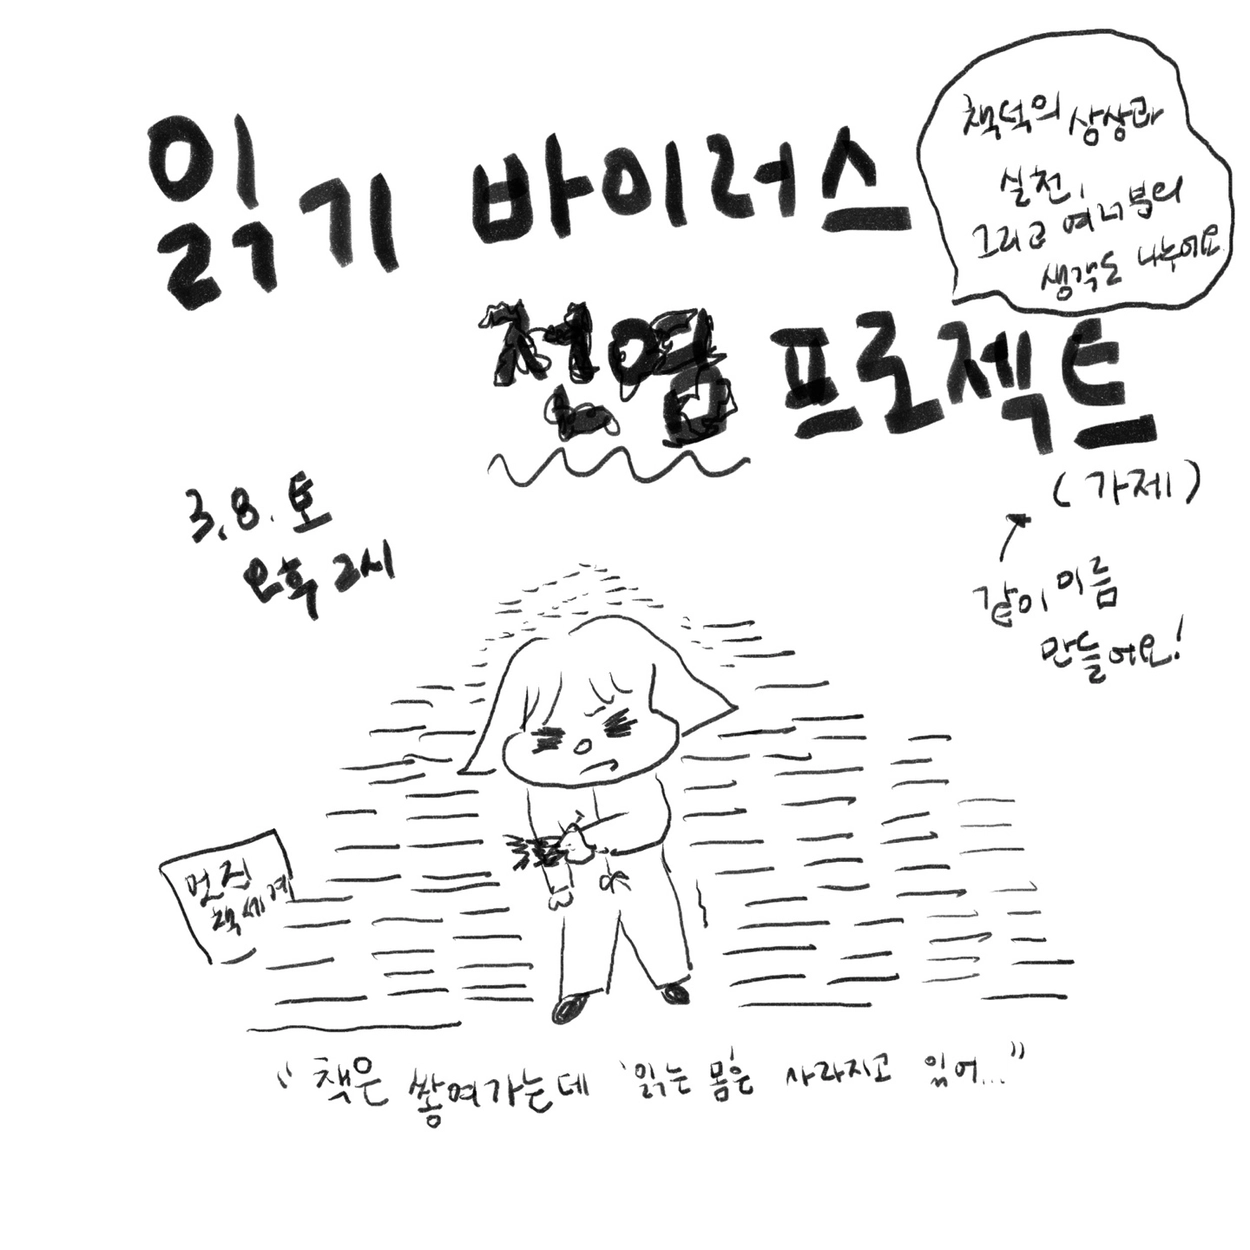 읽기 바이러스
전염 프로젝트
(가제)
책덕의 상상과
실천,
그리고 여러분의
생각도 나누어요
3.8. 토
오후 2시
같이 이름
만들어요!
멋진
책세계
"책은 쌓여가는데 '읽는 몸'은 사라지고 있어..."